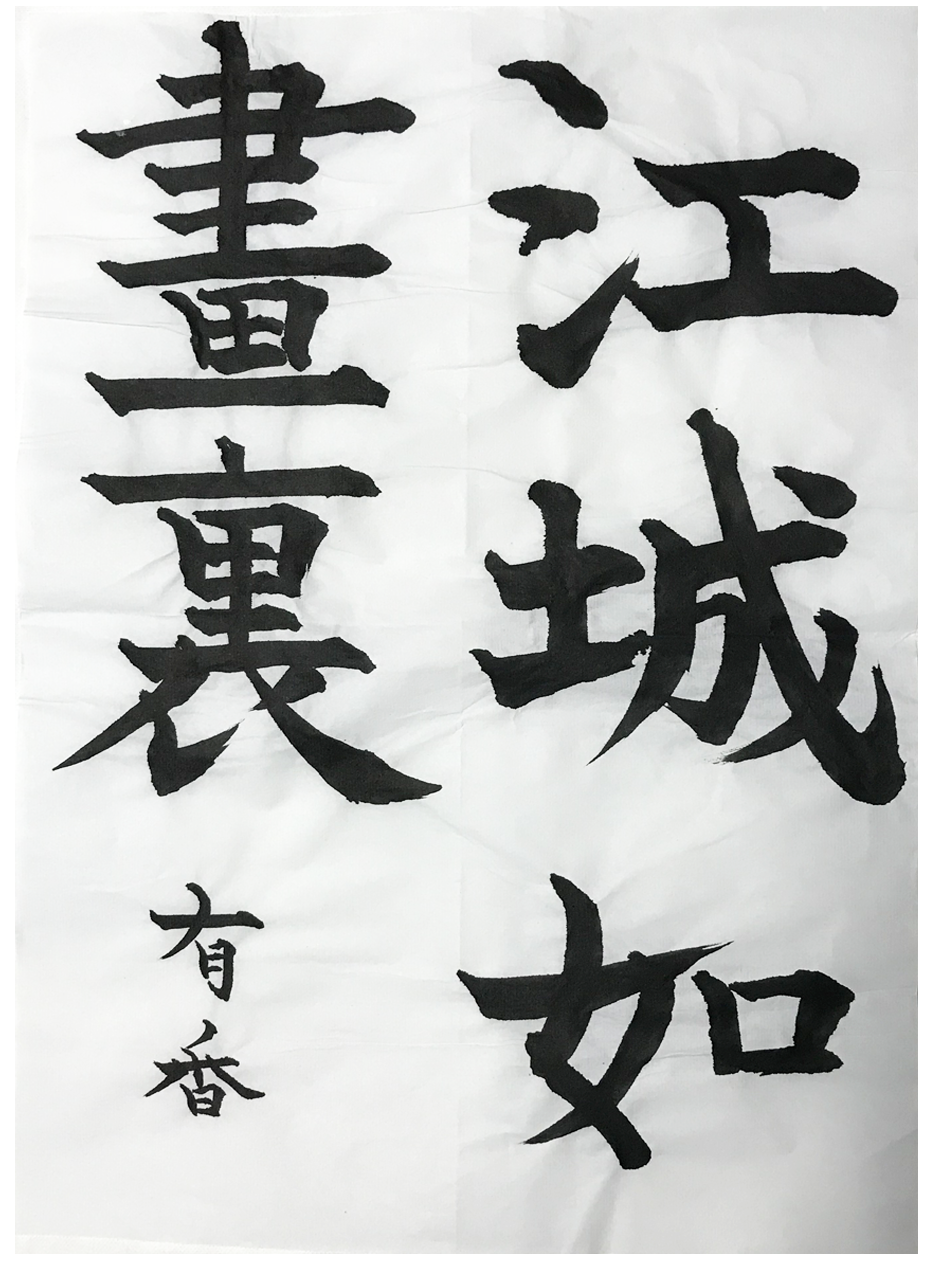 江城如
畫裏
有香